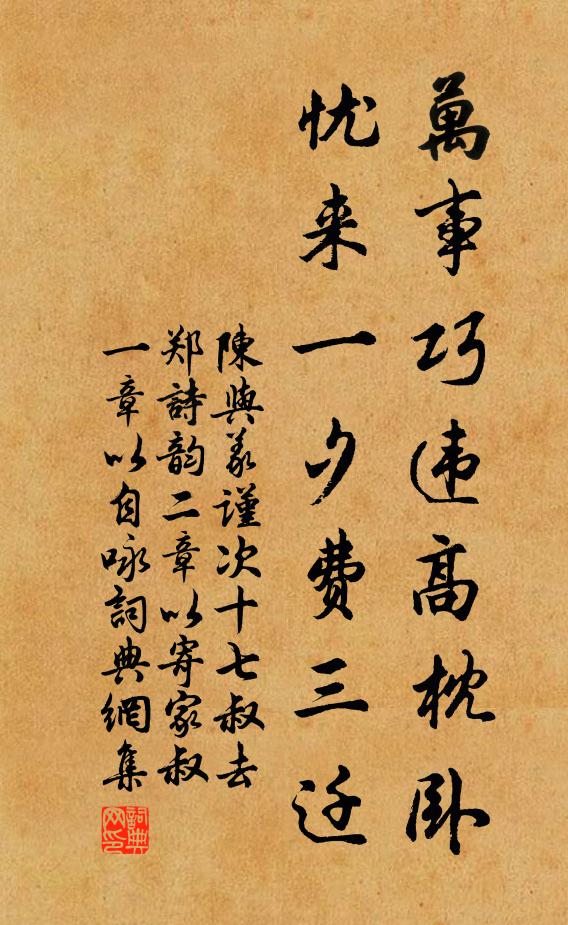 萬事巧违高枕卧
忧来一夕费三迁
陳與義謹次十七叔去
郑詩韵二章以寄家叔
一章以自咏詞典網集
詞典网印